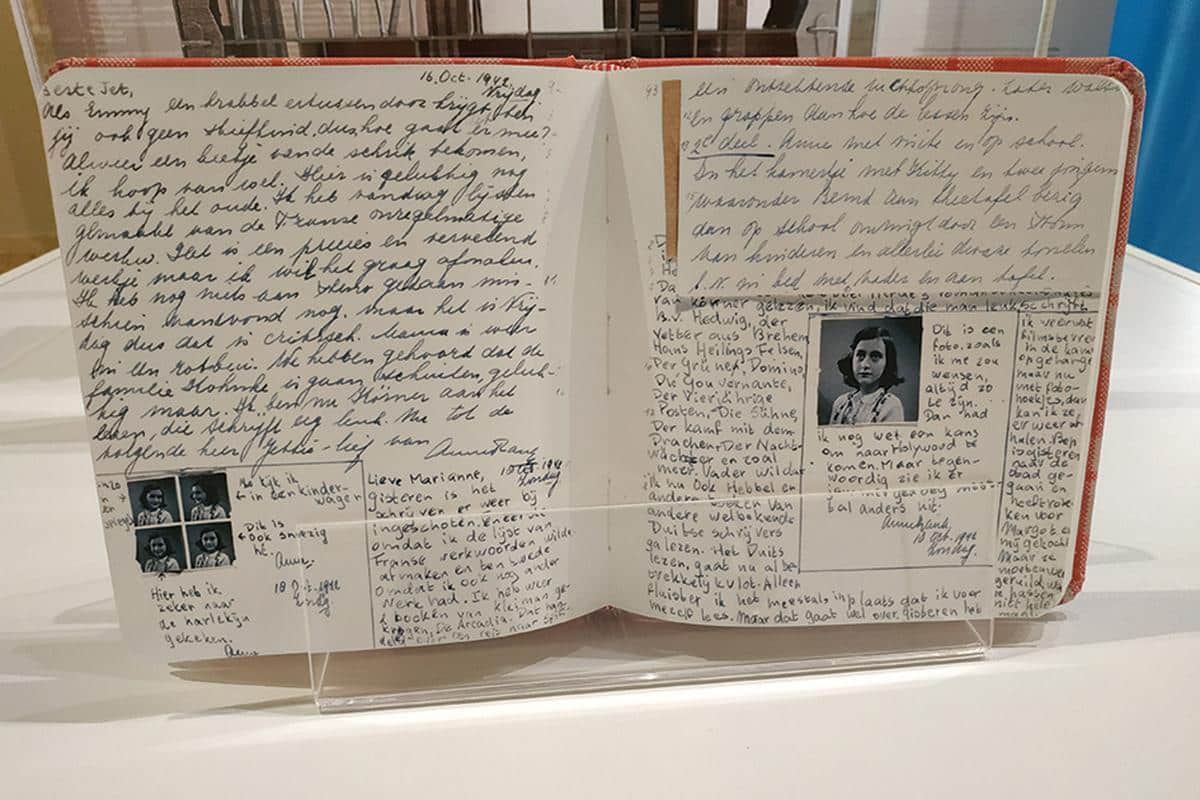 16. Oct. 1942
Vrijdag
Beste Jet,
Als Emmy een krabbel ertussendoor krijgt, ben
jij ook geen stiefkind, dus hoe gaat er mee?
Alweer een beetje van de schrik bekomen,
ik hoop van wel. Hier is gelukkig nog
alles bij het oude. Ik heb vandaag lijsten
gemaakt van de Franse onregelmatige
werkw. Het is een precies en vervelend
werkje maar ik wil het graag afmaken.
Ik heb nog niets aan steno gedaan mis-
schien vanavond nog, maar het is Vrij-
dag dus dat is critisch. Mama is weer
in een rotbui. We hebben gehoord dat de
familie is gaan schuilen, geluk-
kig maar. Ik ben nu Körner aan het
lezen, die schrijft erg leuk. Nu tot de
volgende keer Jetje-lief van Anne Frank
Nu kijk ik
in een kinder-
wagen
Dit is
ook snoezig
hè.
Anne.
18 Oct. 1942
Zondag
Hier heb ik
zeker naar
de harlekijn
gekeken.
Anne
Lieve Marianne,
18 Oct. 1942
Zondag
gisteren is het
schrijven er weer bij
ingeschoten. Eneerzij
omdat ik de lijst van
Franse werkwoorden wilde
afmaken en ten tweede
omdat ik ook nog ander
werk had. Ik heb weer
2 boeken van kleiman ge-
kregen, De Arcadia. Dat han-
delt over een reis naar Spits
93
een ontzettende
en grappen dan hoe de lessen zijn.
2e deel. Anne met visite en op school.
In het kamertje met Kitty en twee jongens
waaronder Bernd aan theetafel bezig
dan op school omringd door een stroom
van kinderen en allerlei dwaze tonelen
b.v. in bed met vader en aan tafel.
van körner gelezen, ik vind dat die man leuk schrijft
B.v. Hedwig, der
Vetter aus Bremen
Hans Heilings Felsen,
Der Grüne Domino,
Die Gouvernante,
Der Vierjährige
Posten, Die Sühne,
Der kamf mit dem
Drachen, Der Nacht-
wächter en zoal
meer. Vader wil dat
ik nu ook Hebbel en
andere boeken van
andere welbekende
Duitse schrijvers
ga lezen. Het Duits
lezen, gaat nu al be-
trekkelijk vlot. Alleen
fluister ik het meestal, in plaats dat ik voor
mezelf lees. Maar dat gaat wel over. gisteren heb
Dit is een
foto, zoals
ik me zou
wensen,
altijd zo
te zijn.
Dan had
ik nog wel een kans
om naar Holywood te
komen. Maar tegen-
woordig zie ik er
jammer genoeg meestal
anders uit.
Anne Frank.
18 Oct. 1942
Zondag.
ik veel
filmster
in de kam
opgehangen
maar nu
met foto-
hoekjes, dan
kan ik ze
er weer af-
halen. Bep
is gisteren
naar de
stad ge-
gaan en
heeft rok-
ken voor
Margot en
mij gekocht
Maar ze
moeten weer
geruild, want
ze passen
niet hele-
maal.